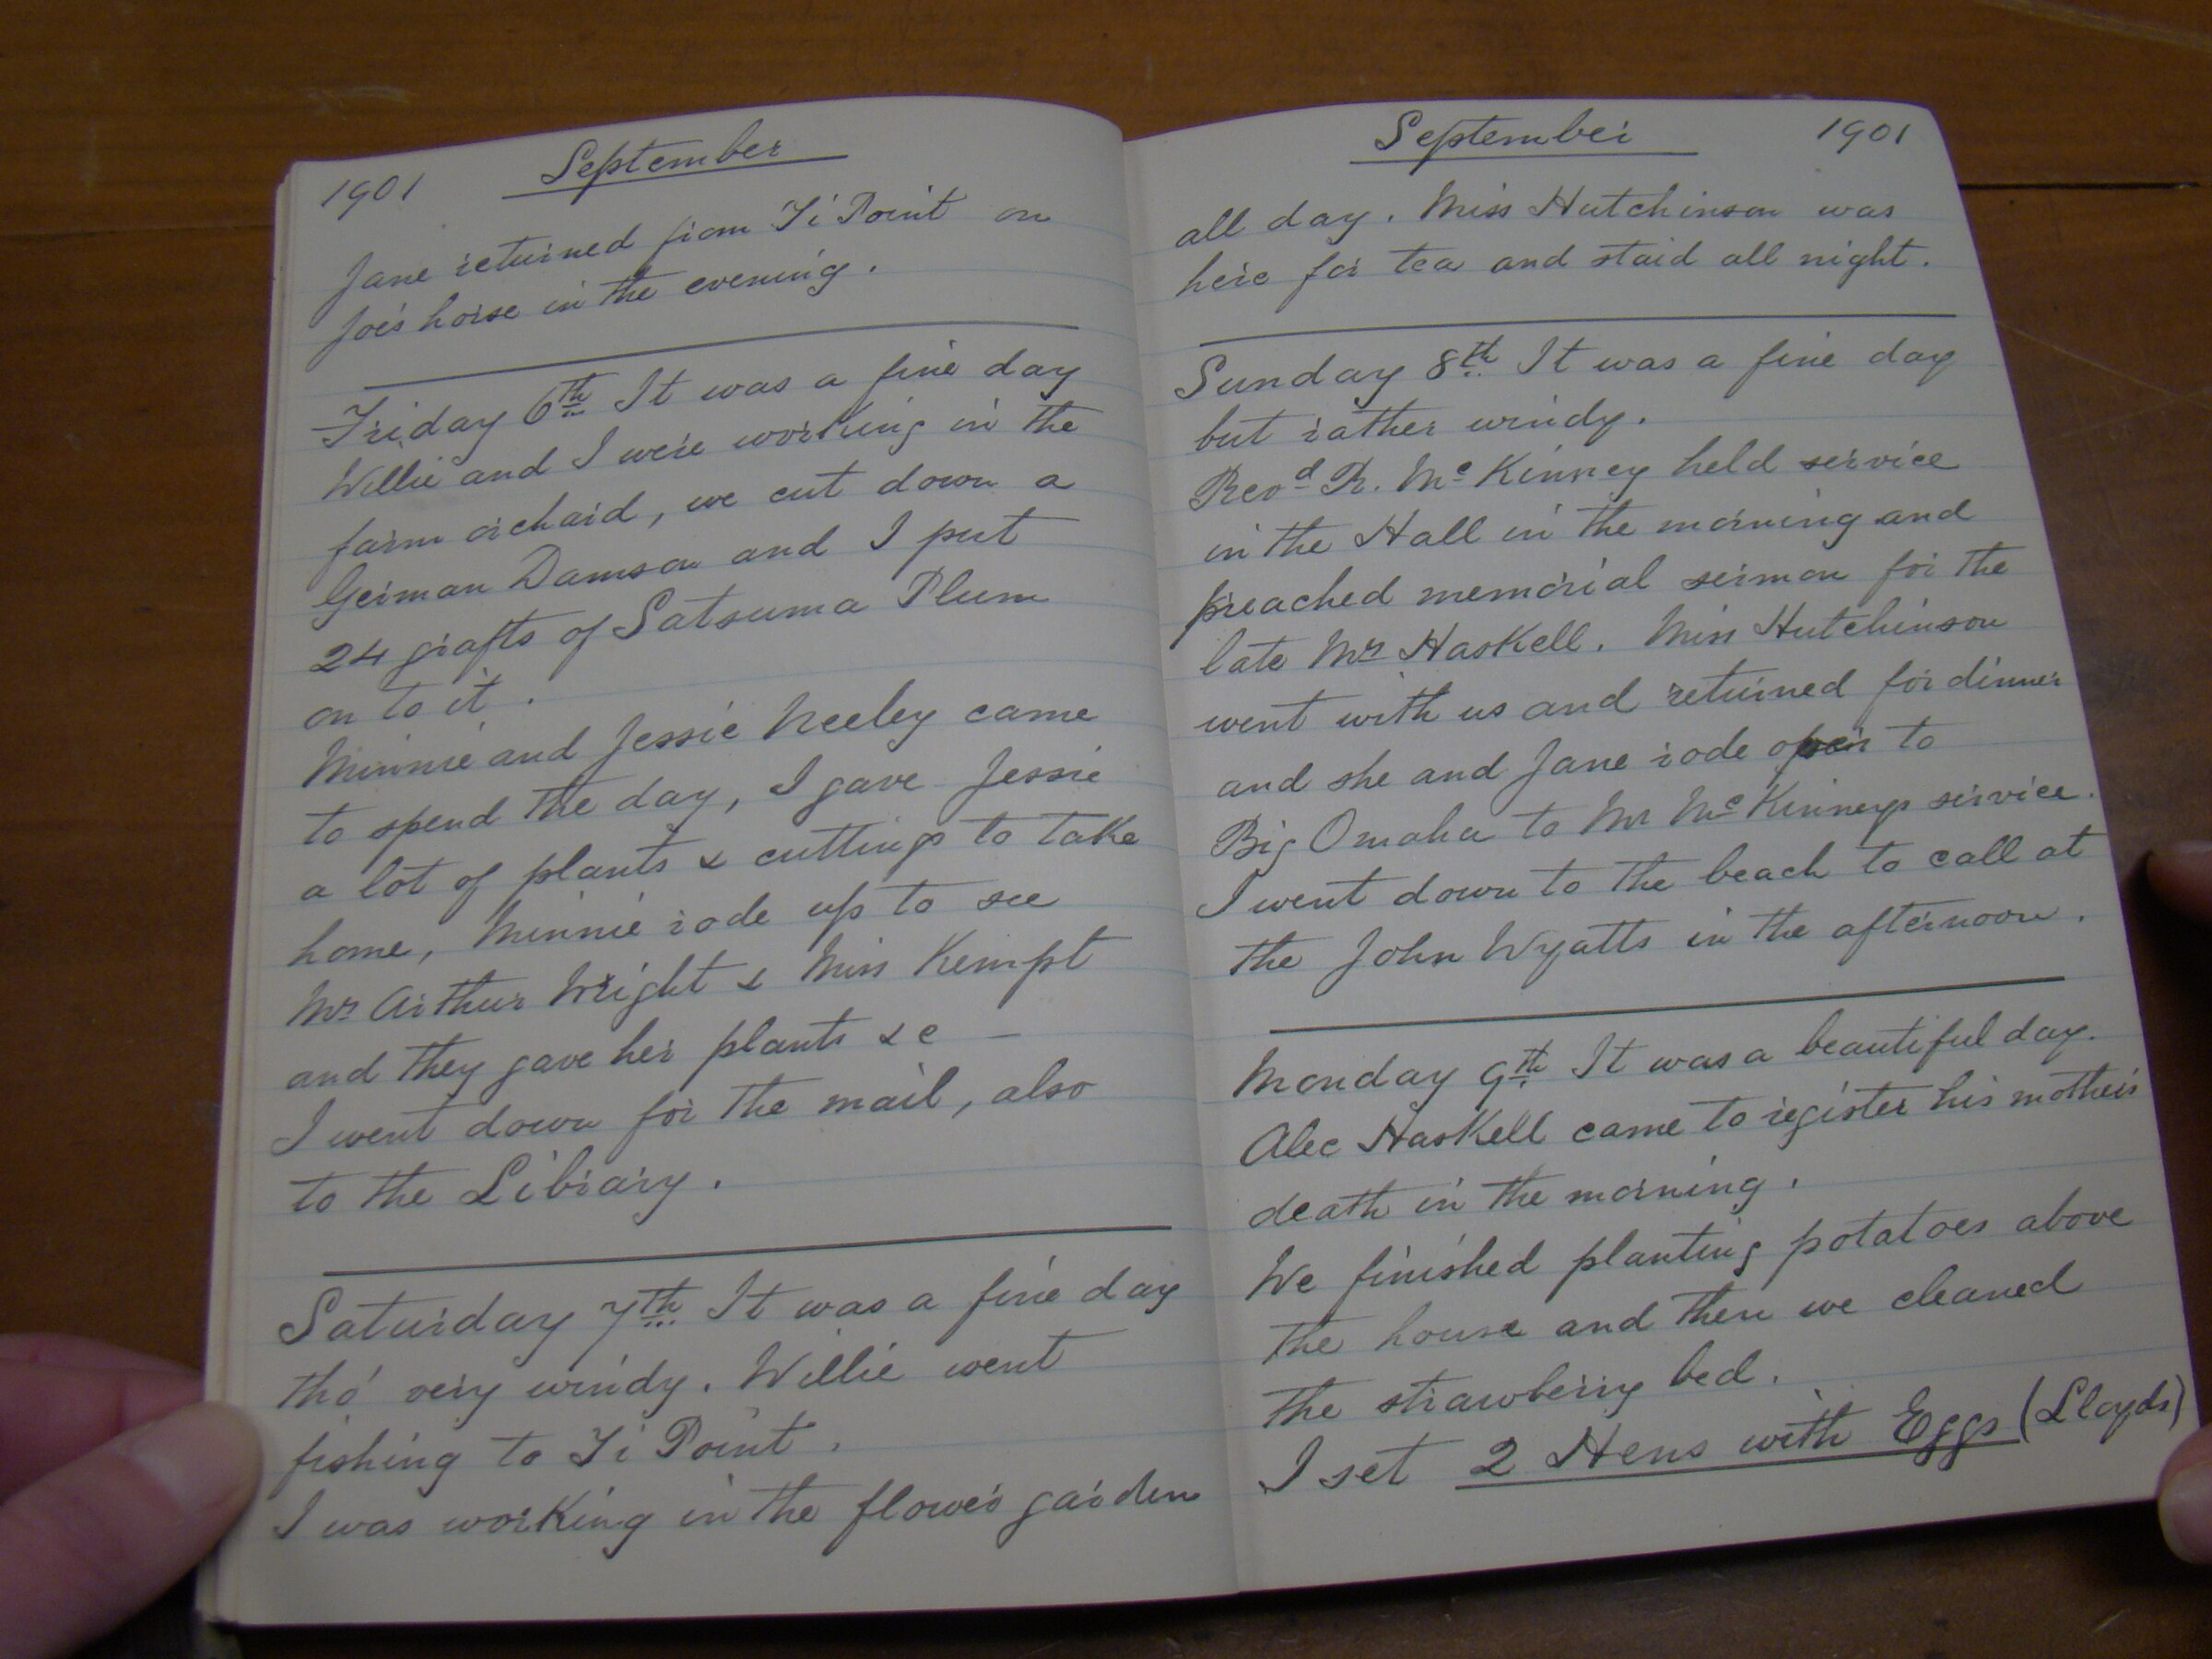 1901 September
Jane returned from Ti Point on
Joe's horse in the evening.
Friday 6th It was a fine day
Willie and I were working in the
farm orchard, we cut down a
German Damson and I put
24 grafts of Satsuma Plum
on to it.
Minnie and Jessie Neeley came
to spend the day, I gave Jessie
a lot of plants & cuttings to take
home, Minnie rode up to see
Mr Arthur Wright & Miss Kempt
and they gave her plants &c —
I went down for the mail, also
to the Library.
Saturday 7th It was a fine day
tho' very windy. Willie went
fishing to Ti Point.
I was working in the flower garden
September 1901
all day. Miss Hutchinson was
here for tea and staid all night.
Sunday 8th It was a fine day
but rather windy.
Revd R. McKinney held service
in the Hall in the morning and
preached memorial sermon for the
late Mrs Haskell. Miss Hutchinson
went with us and returned for dinner
and she and Jane rode over to
Big Omaha to Mr McKinneys service.
I went down to the beach to call at
the John Wyatts in the afternoon.
Monday 9th It was a beautiful day.
Alec Haskell came to register his mothers
death in the morning.
We finished planting potatoes above
the house and then we cleaned
the strawberry bed.
I set 2 Hens with Eggs (Lloyds)